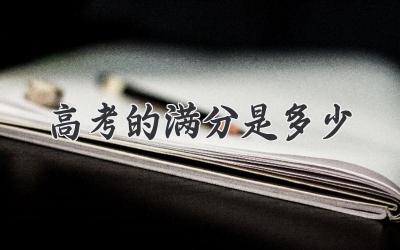 高考的满分是多少